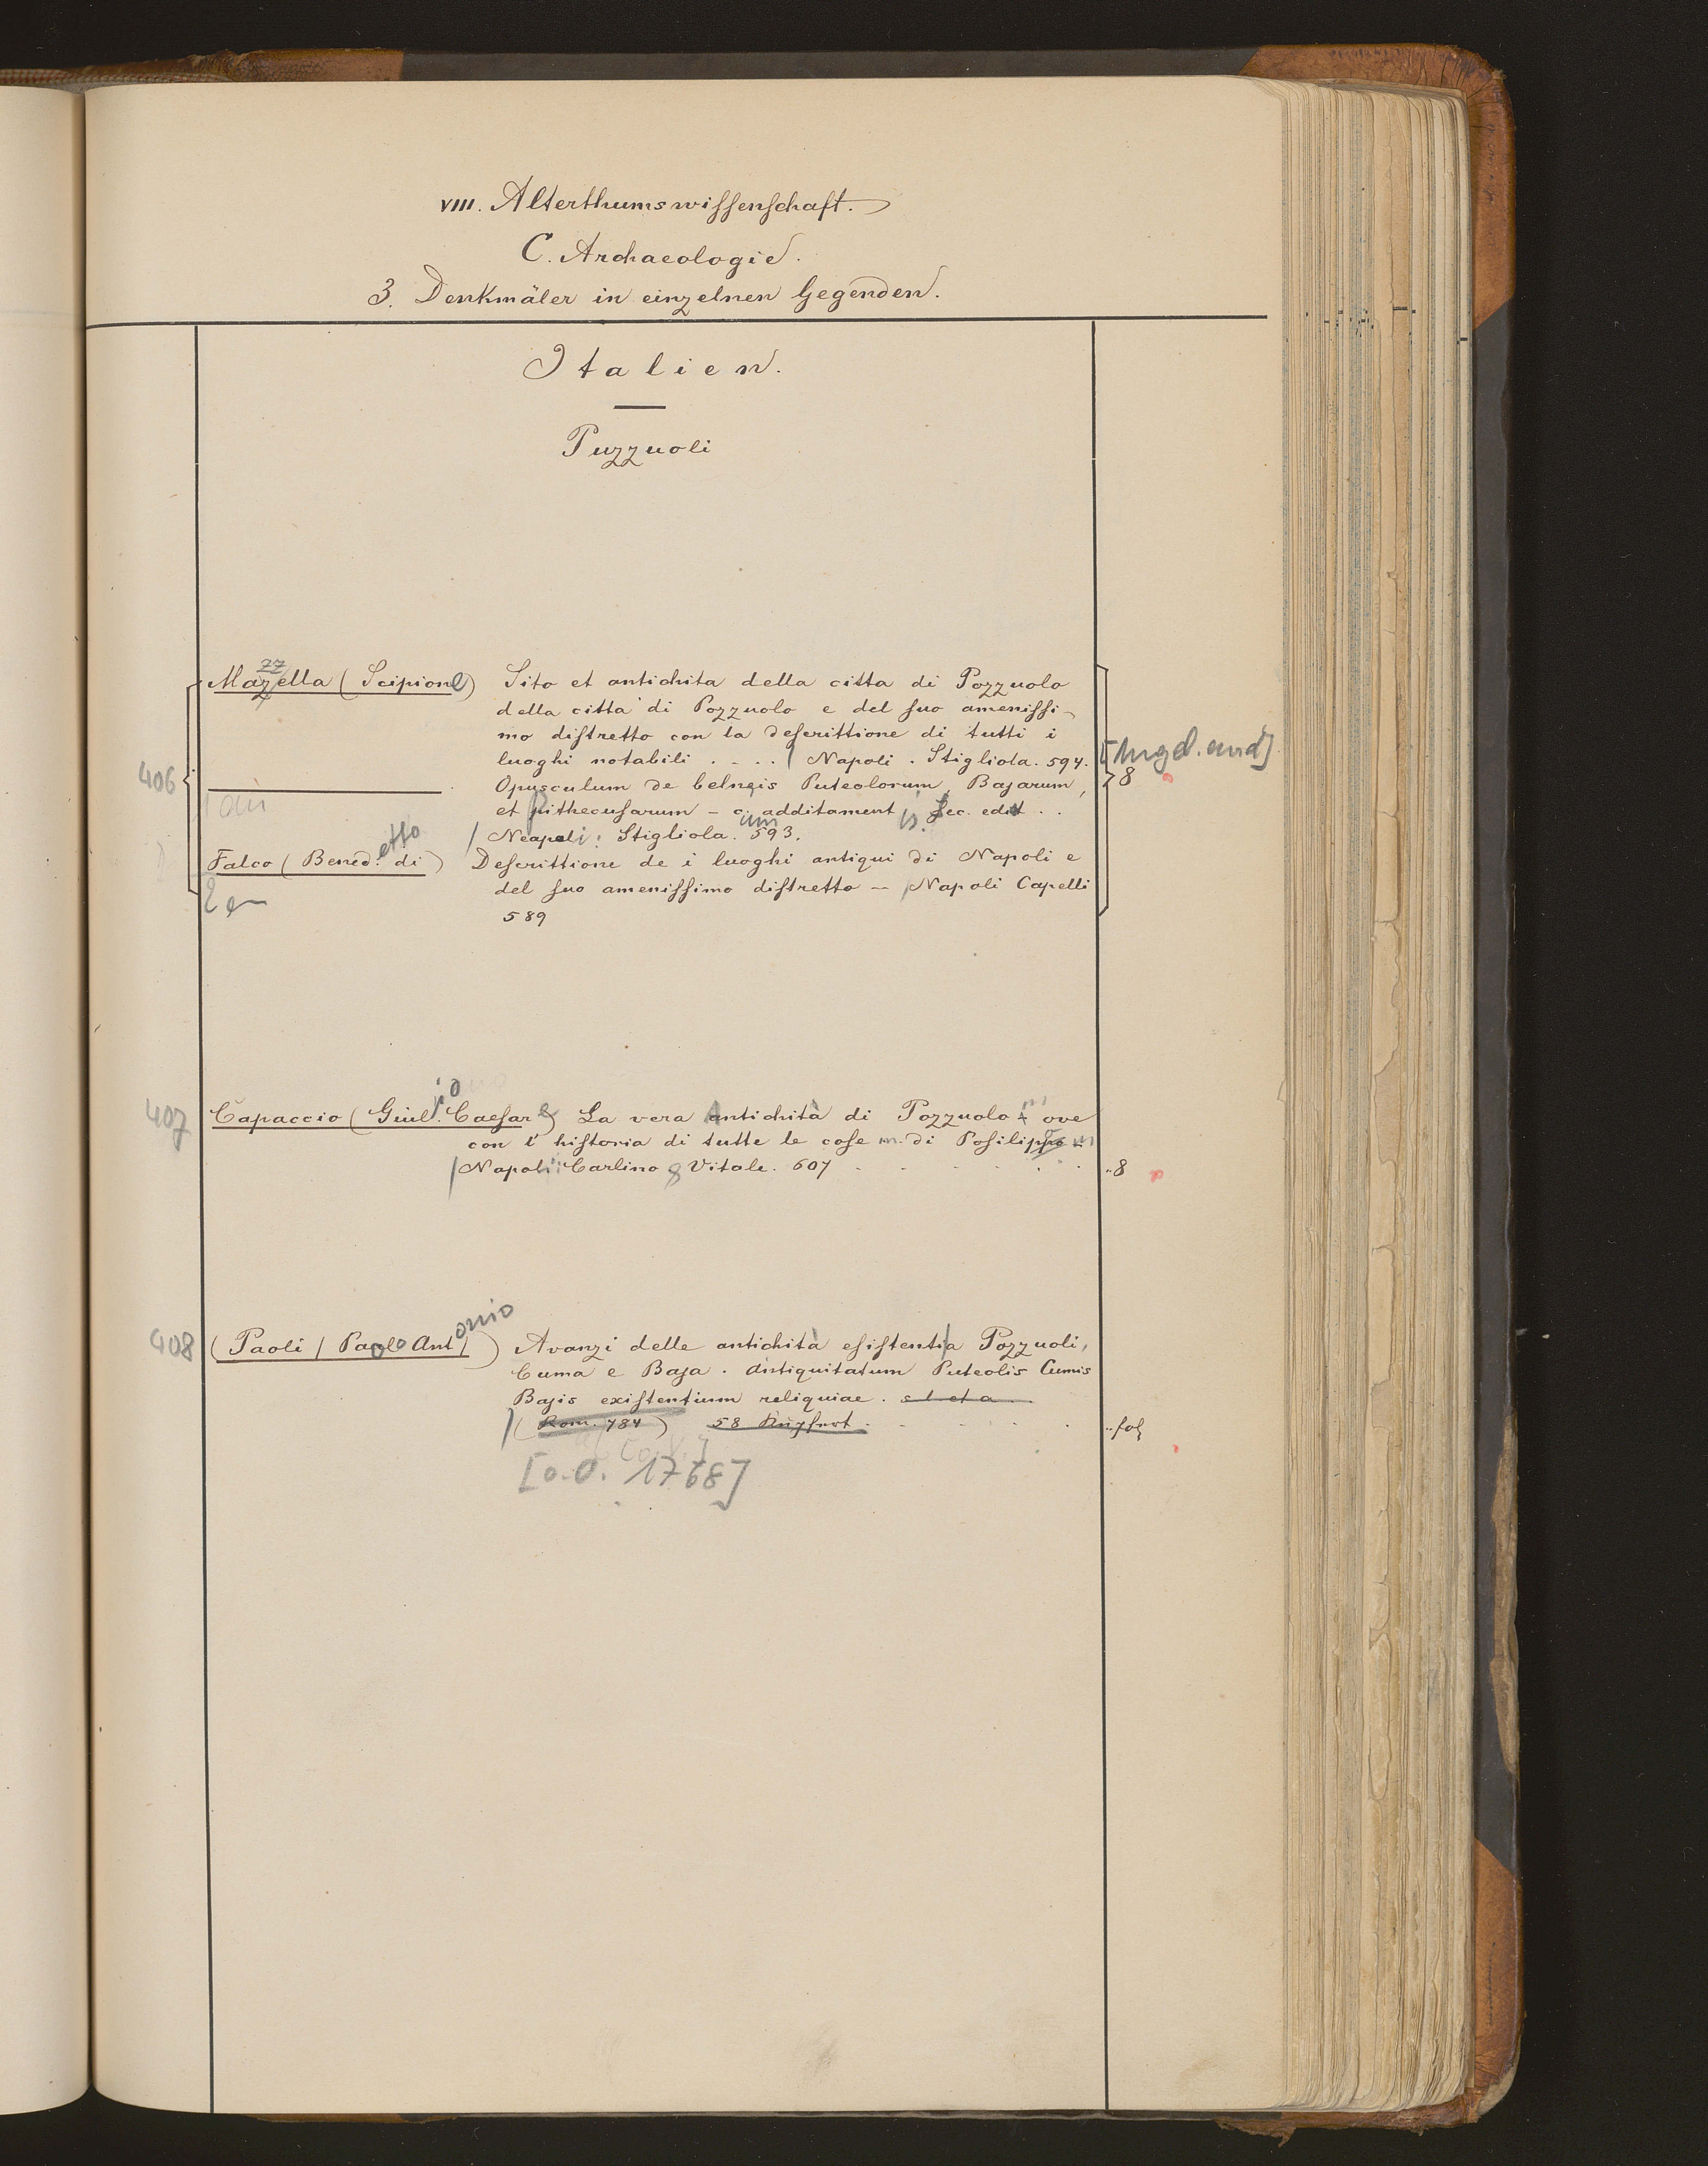 VIII. Alterthumswissenschaft.
C. Archaeologie.
3. Denkmäler in einzelnen Gegenden.
Italien.
Puzzuoli
406
Mazzella (Scipione) Sito et antichita della citta di Pozzuolo
della citta di Pozzuolo e del suo amenissi-
mo distretto con la descrittione di tutti i
luoghi notabili . . . . / Napoli. Stigliola. 594.
Opusculum de belneis Puteolorum, Bajarum,
et pithecusarum — cum additamentis. Sec. edit . .
/ Neapoli: Stigliola. 593.
Falco (Benedetto di) Descrittione de i luoghi antiqui di Napoli e
del suo amenissimo distretto — / Napoli Capelli
589
8
407
Capaccio (Giulio Caesare) La vera Antichità di Pozzuolo ... ove
con l'historia di tutte le cose ... di Posilipo ...
/ Napoli: Carlino & Vitale. 607
8
408
(Paoli / Paolo Antonio) Avanzi delle antichità esistenti a Pozzuoli,
Cuma e Baja. Antiquitatum Puteolis Cumis
Bajis existentium reliquiae.
/ (Rom. 784) 58
fol
[o.O. 1768]